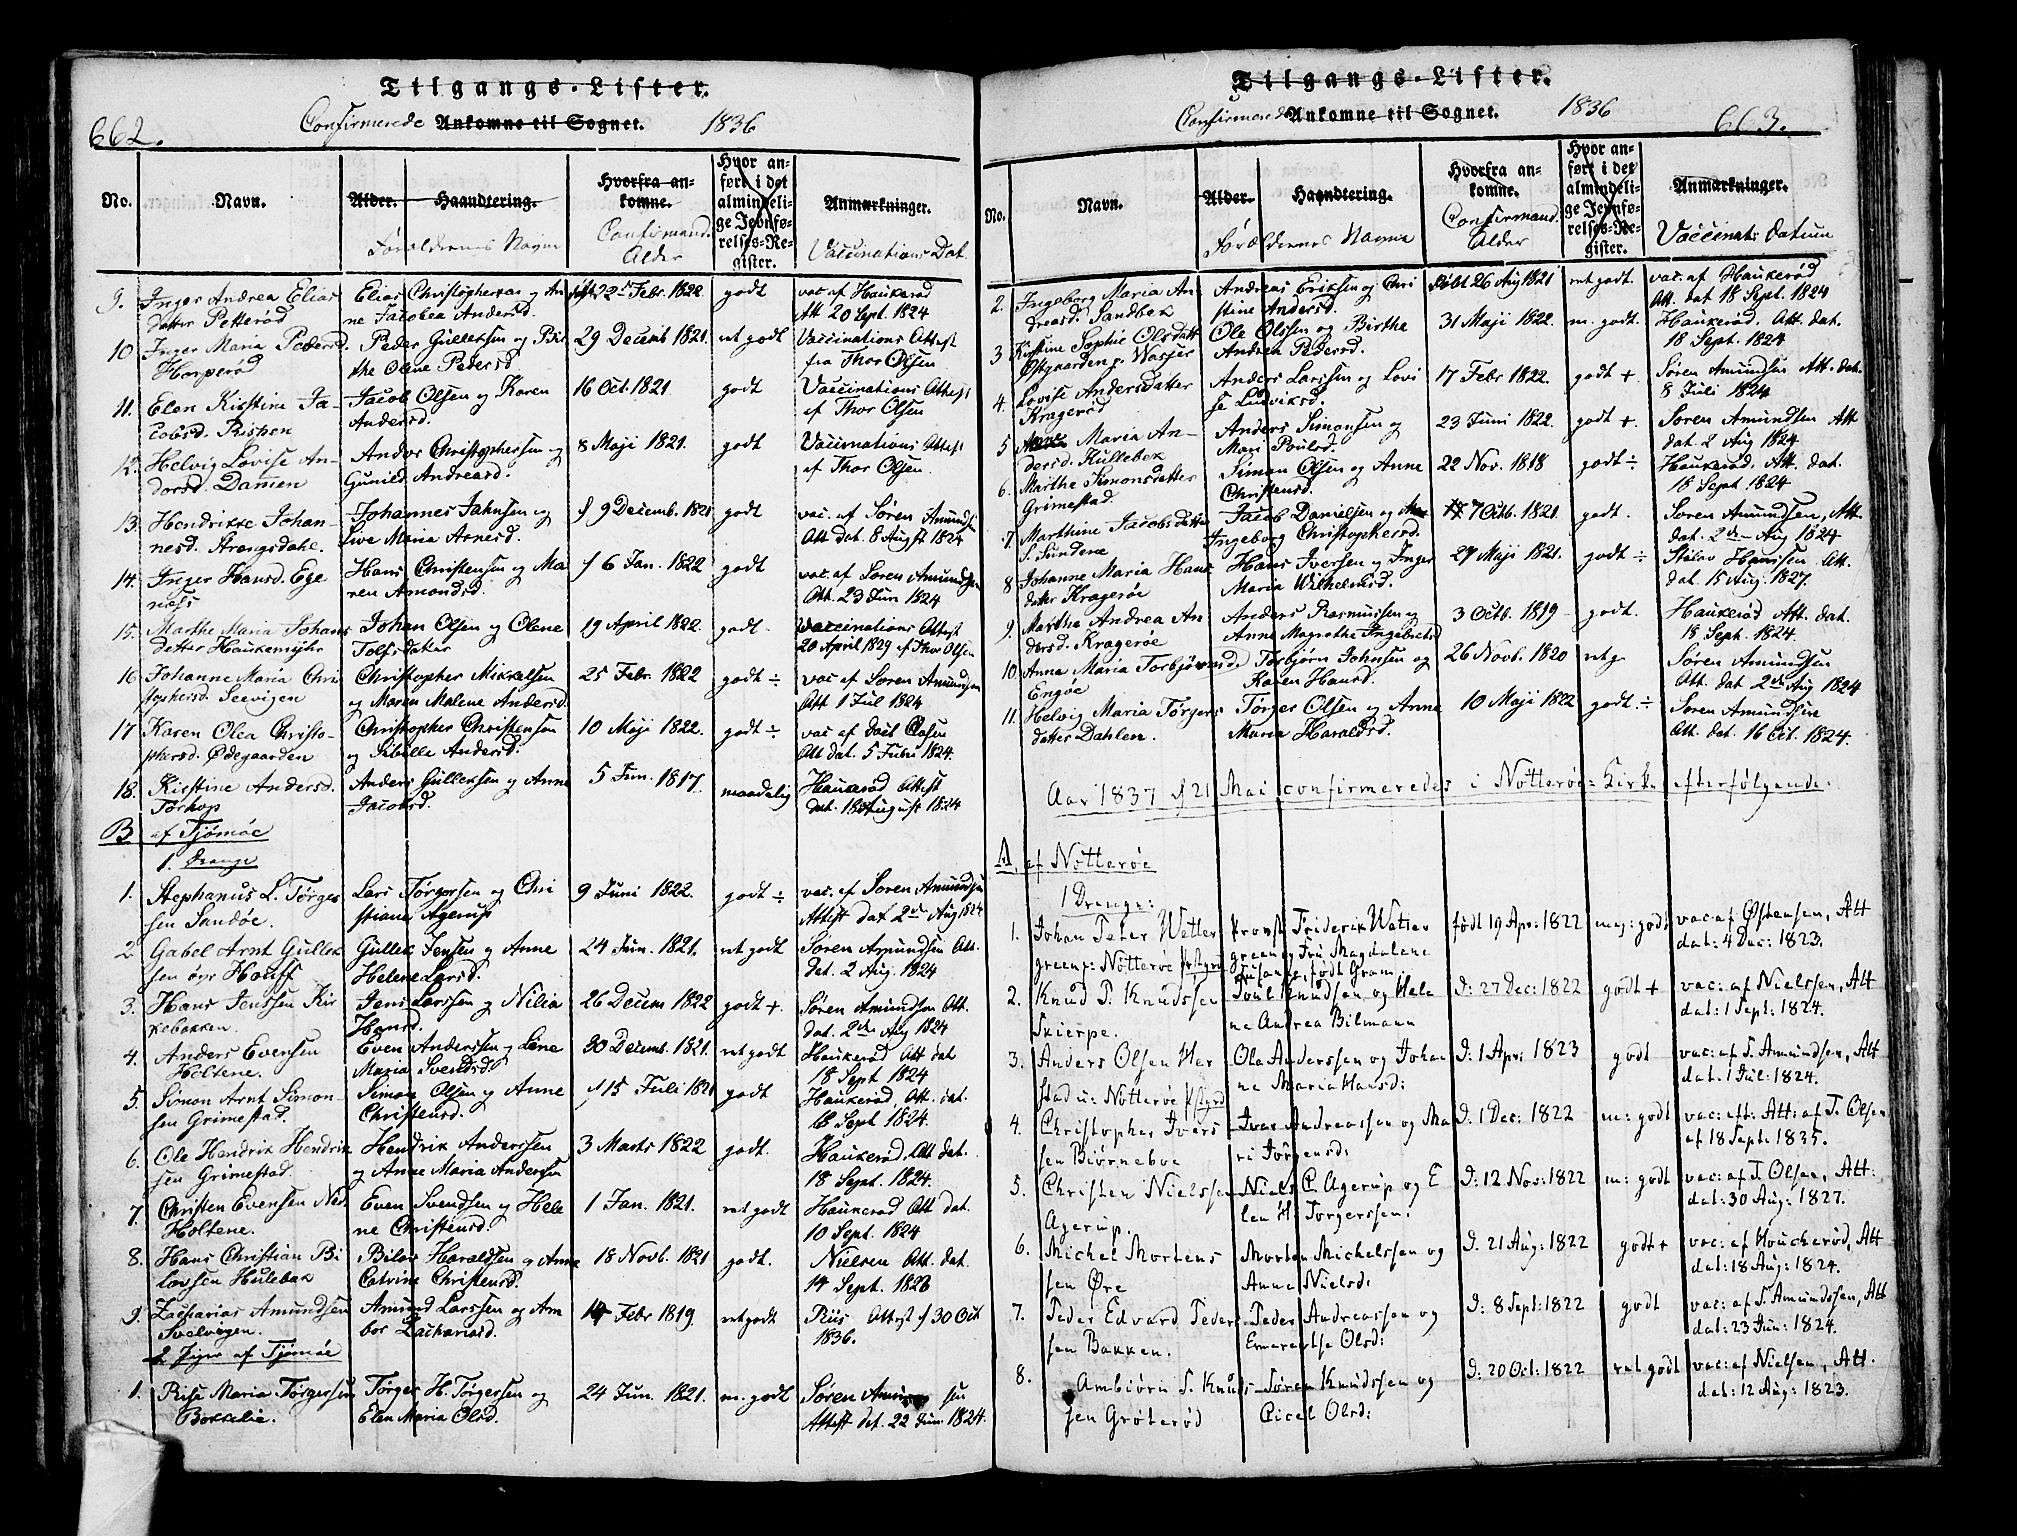 Tilgangs-Lister.
662.
Confirmerede Ankomne til Sognet. 1836
No.
Navn.
Alder.
Haandtering.
Forældrenes Navne
Hvorfra ankomne.
Confirmand. Alder
Hvor anført i det almindelige Jevnførelses-Register.
Anmærkninger.
Vaccinations Dat.
9. Inger Andrea Elias Elias Christophersen og An født 22de Febr. 1822 godt vac. af Haukerød
datter Petterød ne Jacobea Andersd. Att 20 Sept. 1824
10 Inger Maria Pedersd. Peder Gulleksen og Bir 29 Decemb 1821. ret godt Vaccinations Attest
Horperød the Olene Pedersd fra Thor Olsen
11. Elen Kirstine Ja- Jacob Olsen og Karen 16 Oct. 1821. godt Vaccinations Attest
cobsd. Rispen Andersd. af Thor Olsen
12. Helvig Lovise An- Anders Christophersen og 8 Maji 1821. godt Vaccinations Attest
dersd. Damen Gunild Andreasd. af Thor Olsen.
13. Hendrikke Johan- Johannes Jahnsen og f 9 Decemb. 1821 godt vac. af Søren Amundsen
nesd. Strengsdahl. Live Maria Arnesd. Att dat. 8 Augst 1824
14. Inger Hansd. Ege Hans Christensen og Ma f 6 Jan. 1822 godt vac. af Søren Amundsen
næss ren Amondsd. Att. 23 Jun 1824
15. Marthe Maria Johans Johan Olsen og Olene 19 April 1822. godt. Vaccinations Attest
datter Haukemyhr Tolfsdatter 20 April 1829 af Thor Olsen
16 Johanne Maria Chri Christopher Mikkelsen 25 Febr. 1822 godt ÷ vac af Søren Amundsen
stophersd. Seevigen og Maren Malene Andersd. Att 1 Jul 1824
17 Karen Olea Christo- Christopher Christensen 10 Maji 1822. godt ÷ vac af
phersd. Ødegaarden og Sibille Andersd. Att dat. 5 Juni 1824.
18. Kirstine Andersd. Anders Gulleksen og Anne 5 Jun. 1817. maadelig Haukerød Attest
Torkop Jacobsd. dat. 18 August 1824
B af Tjømøe
1. Drenge
1. Stephanus L. Tørger Lars Tørgersen og Chri 9 Juni 1822. godt ÷ vac. af Søren Amundsen
sen Sandøe. stiane Agerup Attest dat 2de Aug 1824
2 Gabel Arnt Gullek Gullek Jensen og Anne 24 Jun. 1821. ret godt Søren Amundsen Att.
sen øvr Houff Helene Larsd. Dat. 2 Aug. 1824
3. Hans Jenssen Kir Jens Larssen og Nilia 26 Decem 1822 godt +. Søren Amundsen Att.
kebakken. Hansd. dat. 2de Aug 1824
4. Anders Evensen Even Anderssen og Line 30 Decemb. 1821. ret godt Haukerød Att dat
Holtene. Maria Svendsd. 18 Sept 1824
5. Simon Arnt Simon- Simon Olsen og Anne f 15 Juli 1821 godt Haukerød, Att. dat.
sen Grimestad. Christensd. 18 Sept 1824.
6. Ole Hendrik Hendrik Hendrik Anderssen 3 Marts 1822 godt. Haukerød, Att dat.
sen Grimestad. og Anne Maria Andersen 18 Sept. 1824.
7. Christen Evensen Ned. Even Svendsen og Hele 1 Jan. 1821. ret godt Haukerød Att dat.
Holtene. ne Christensd. 10 Sept. 1824
8. Hans Christian Bi Bilov Haraldsen og Anne 18 Novb. 1821 godt. Nielsen Att. dat.
lovsen Hulebak Catrine Christensd. 14 Sept. 1826
9. Zacharias Amundsen Amund Larssen og Am Febr 1819 ret godt Riis Attest f 30 Oct
Svelvigen. bor Zachariasd. 1836.
2 Piger af Tjømøe
1. Rise Maria Tørgersen Tørger H. Tørgersen og 24 Jun. 1821. m. godt Søren sen
Bokkelie. Elen Maria Olsd. Attest dat. 22 Jun. 1824.
Tilgangs-Lister.
Confirmerede Ankomne til Sognet. 1836 663.
No.
Navn.
Alder.
Haandtering.
Forældrenes Navne
Hvorfra ankomne.
Confirmand. Alder
Hvor anført i det almindelige Jevnførelses-Register.
Anmærkninger.
Vaccinat: Datum
2. Ingeborg Maria An Andreas Eriksen og Chri Født 26 Aug 1821 ret godt. vac. af Haukerød
dreasd. Sandbek stine Andersd. Att. dat 18 Sept. 1824
3 Kirstine Sophie Olsdatt Ole Olssen og Birthe 31 Maji 1822. m. godt. Haukerød. Att. dat.
Østgaarden p. Wasser Andrea Pedersd. 18 Sept. 1824
4. Lovise Andersdatter Anders Larssen og Lovi 17 Febr 1822. godt +. Søren Amundsen Att. dat.
Kragerød se Ludviksd. 8 Juli 1824
5 Maria An- Anders Simonsen og 23 Juni 1822. godt +. Søren Amundsen Att
dersd. Hullebek Mari Poulsd. dat. 2 Aug 1824.
6. Marthe Simonsdatter Simon Olsen og Anne 22 Nov. 1818 godt ÷ Haukerød, Att. dat.
Grimestad Christensd. 18 Sept. 1824
7. Marthine Jacobsdatter Jacob Danielsen og 7 Octb. 1821. godt. Søren Amundsen, Att.
S. Sundene Ingeborg Christophersd. dat. 2de Aug 1824
8 Johanne Maria Hans Hans Iversen og Inger 27 Maji 1821. godt ÷ Hanssen Att.
datter Kragerøe Maria Wilhelmsd. dat. 15 Aug. 1827.
9. Marthe Andrea An Anders Rasmussen og 3 Octb. 1819 godt. Haukerød Att. dat.
dersd. Kragerøe Anne Magrethe Ingebretsd 18 Sept. 1824.
10 Anne Maria Torbjørnsd Torbjørn Johnsen og 26 Novb. 1820 ret g. Søren Amundsen
Engøe Karen Hansd. Att. dat 2de Aug 1824
11. Helvig Maria Tørgers Tørger Olsen og Anne 10 Maji 1822 godt. ÷ Søren Amundsen
datter Dahlen. Maria Haraldsd. Att. dat. 16 Oct. 1824.
Aar 1837 d 21 Mai confirmeredes i Nøtterøe Kirke efterfølgende.
A. af Nøtterøe
1 Drenge:
1. Johan Peter Wetter Provst Friderik Wetter født 19 Apr: 1822 meg: godt vac af Østensen, Att
green, Nøtterøe Pstgrd green og Fru Magdalene dat: 4 Dec: 1823.
Susanne, født Gram
2. Knud P. Knudssen Poul Knudsen og Hele D: 27 Dec: 1822 godt + vac: af Nielssen, Att
Skierpe. ne Andrea Bilmann dat: 1 Sept: 1824.
3. Anders Olsen Her Ole Anderssen og Johan D: 1 Apr: 1823 godt vac: af S. Amundsen, Att
stad u: Nøtterøe Pstgrd ne Maria Hansd: dat: 1 Jul: 1824.
4. Christopher Ivers Ivar Andreassen og Ma D: 1 Dec: 1822 m: godt vac: eft: Att: af T. Olsen
sen Biørneboe ri Jørgensd: af 18 Sept: 1835.
5. Christen Nielssen Niels C. Agerup og E D: 12 Nov: 1822 m: godt vac: af T. Olsen, Att:
Agerup. len H. Torgerssen. dat: 30 Aug: 1827.
6. Michel Mortens Morten Michelssen og D: 21 Aug: 1822 godt + vac: af Houckerød, Att
sen Øre Anne Nielsd: dat: 18 Aug: 1824.
7. Peder Edvard Peder Peder Andreassen og D: 8 Sept: 1822 godt vac: af S. Amundssen, Att
sen Bakken. Emerentse Olsd: dat: 23 Jun: 1824.
8. Ambiørn S. Knuds Søren Knudssen og D: 20 Oct: 1822 ret godt vac: af Nielsen, Att.
sen Grøterød Cicel Olsd: dat: 12 Aug: 1823.